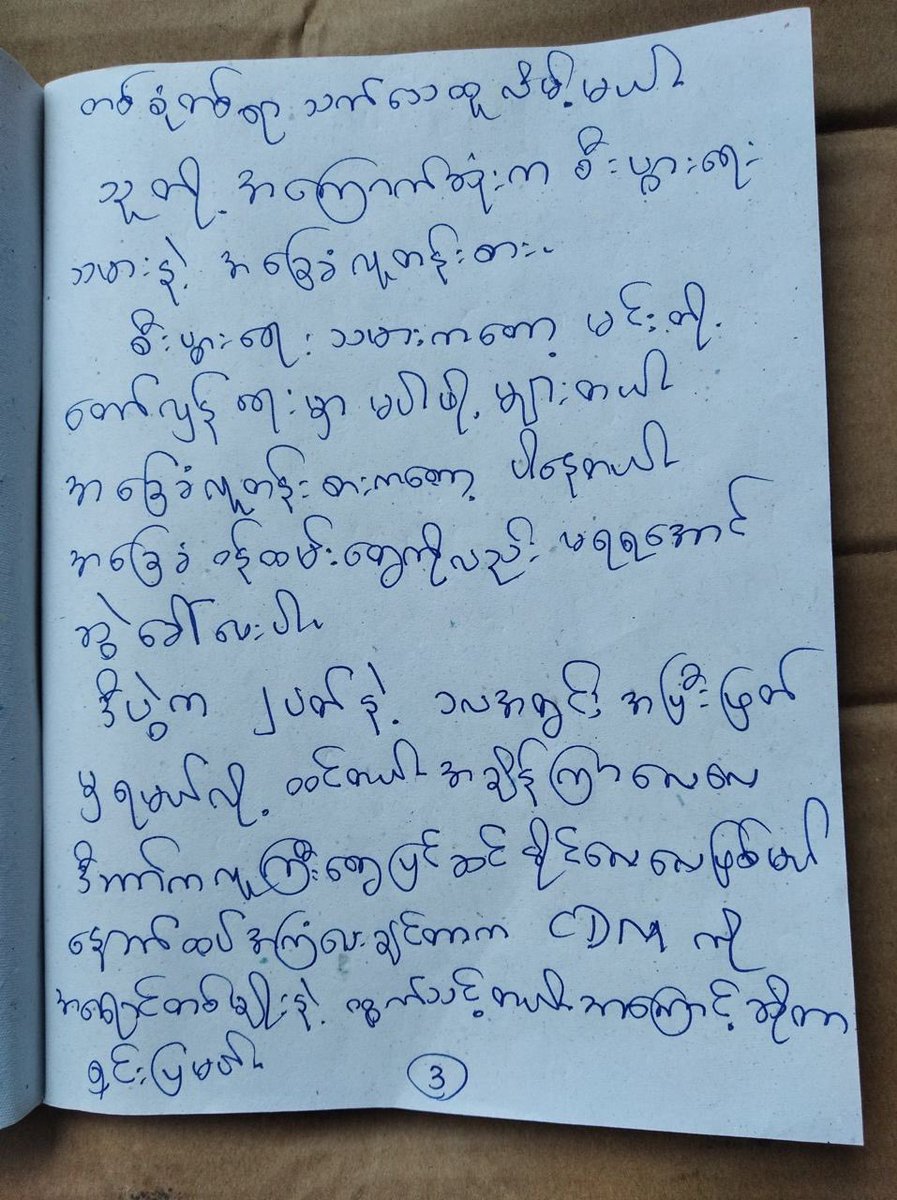 တစ်ခုတစ်ရာ သက်သေထူလိမ့်မယ်။
သူတို့ အကြောက်ဆုံးက စီးပွားရေး
သမားနဲ့ အခြေခံလူတန်းစား။
စီးပွားရေးသမားကတော့ မင်းတို့
တော်လှန်ရေးမှာ မပါဖို့ များတယ်။
အခြေခံလူတန်းစားကတော့ ပါနေတယ်။
အခြေခံ ဝန်ထမ်းတွေကိုလည်း မရရအောင်
ဆွဲခေါ်ပေးပါ။
ဒီပွဲက ၂ပတ်နဲ့ ၁လအတွင်း အပြီးဖြတ်
မှ ရမယ်လို့ ထင်တယ်။ အချိန်ကြာလေလေ
ဒီဘက်ကလူကြီးတွေပြင်ဆင်နိုင်လေလေဖြစ်မယ်
နောက်ထပ်အကြံပေးချင်တာက CDM ကို
အရောင်တစ်မျိုးနဲ့ ထွက်သင့်တယ်။ ဘာကြောင့်ဆိုတာ
ရှင်းပြမယ်။
3